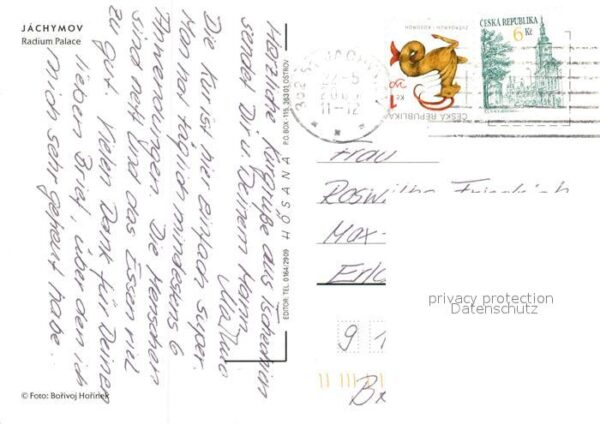 JÁCHYMOV
Radium Palace
Herzliche Kurgrüße aus Tschechien
sendet Dir u. Deinem Mann
Die Kur ist hier einfach super.
Man hat täglich mindestens 6
Anwendungen. Die Menschen
sind nett und das Essen viel
zu gut. Vielen Dank für Deinen
lieben Brief, über den ich
mich sehr gefreut habe.
© Foto: Bořivoj Hořínek
EDITOR: TEL. 0164/2909 HOSANA P.O.BOX-115, 363 01 OSTROV
11-12
ČESKÁ REPUBLIKA
Kč
ČESKÁ REPUBLIKA
6
Kč
Frau
Max-
privacy protection
Datenschutz
9 1